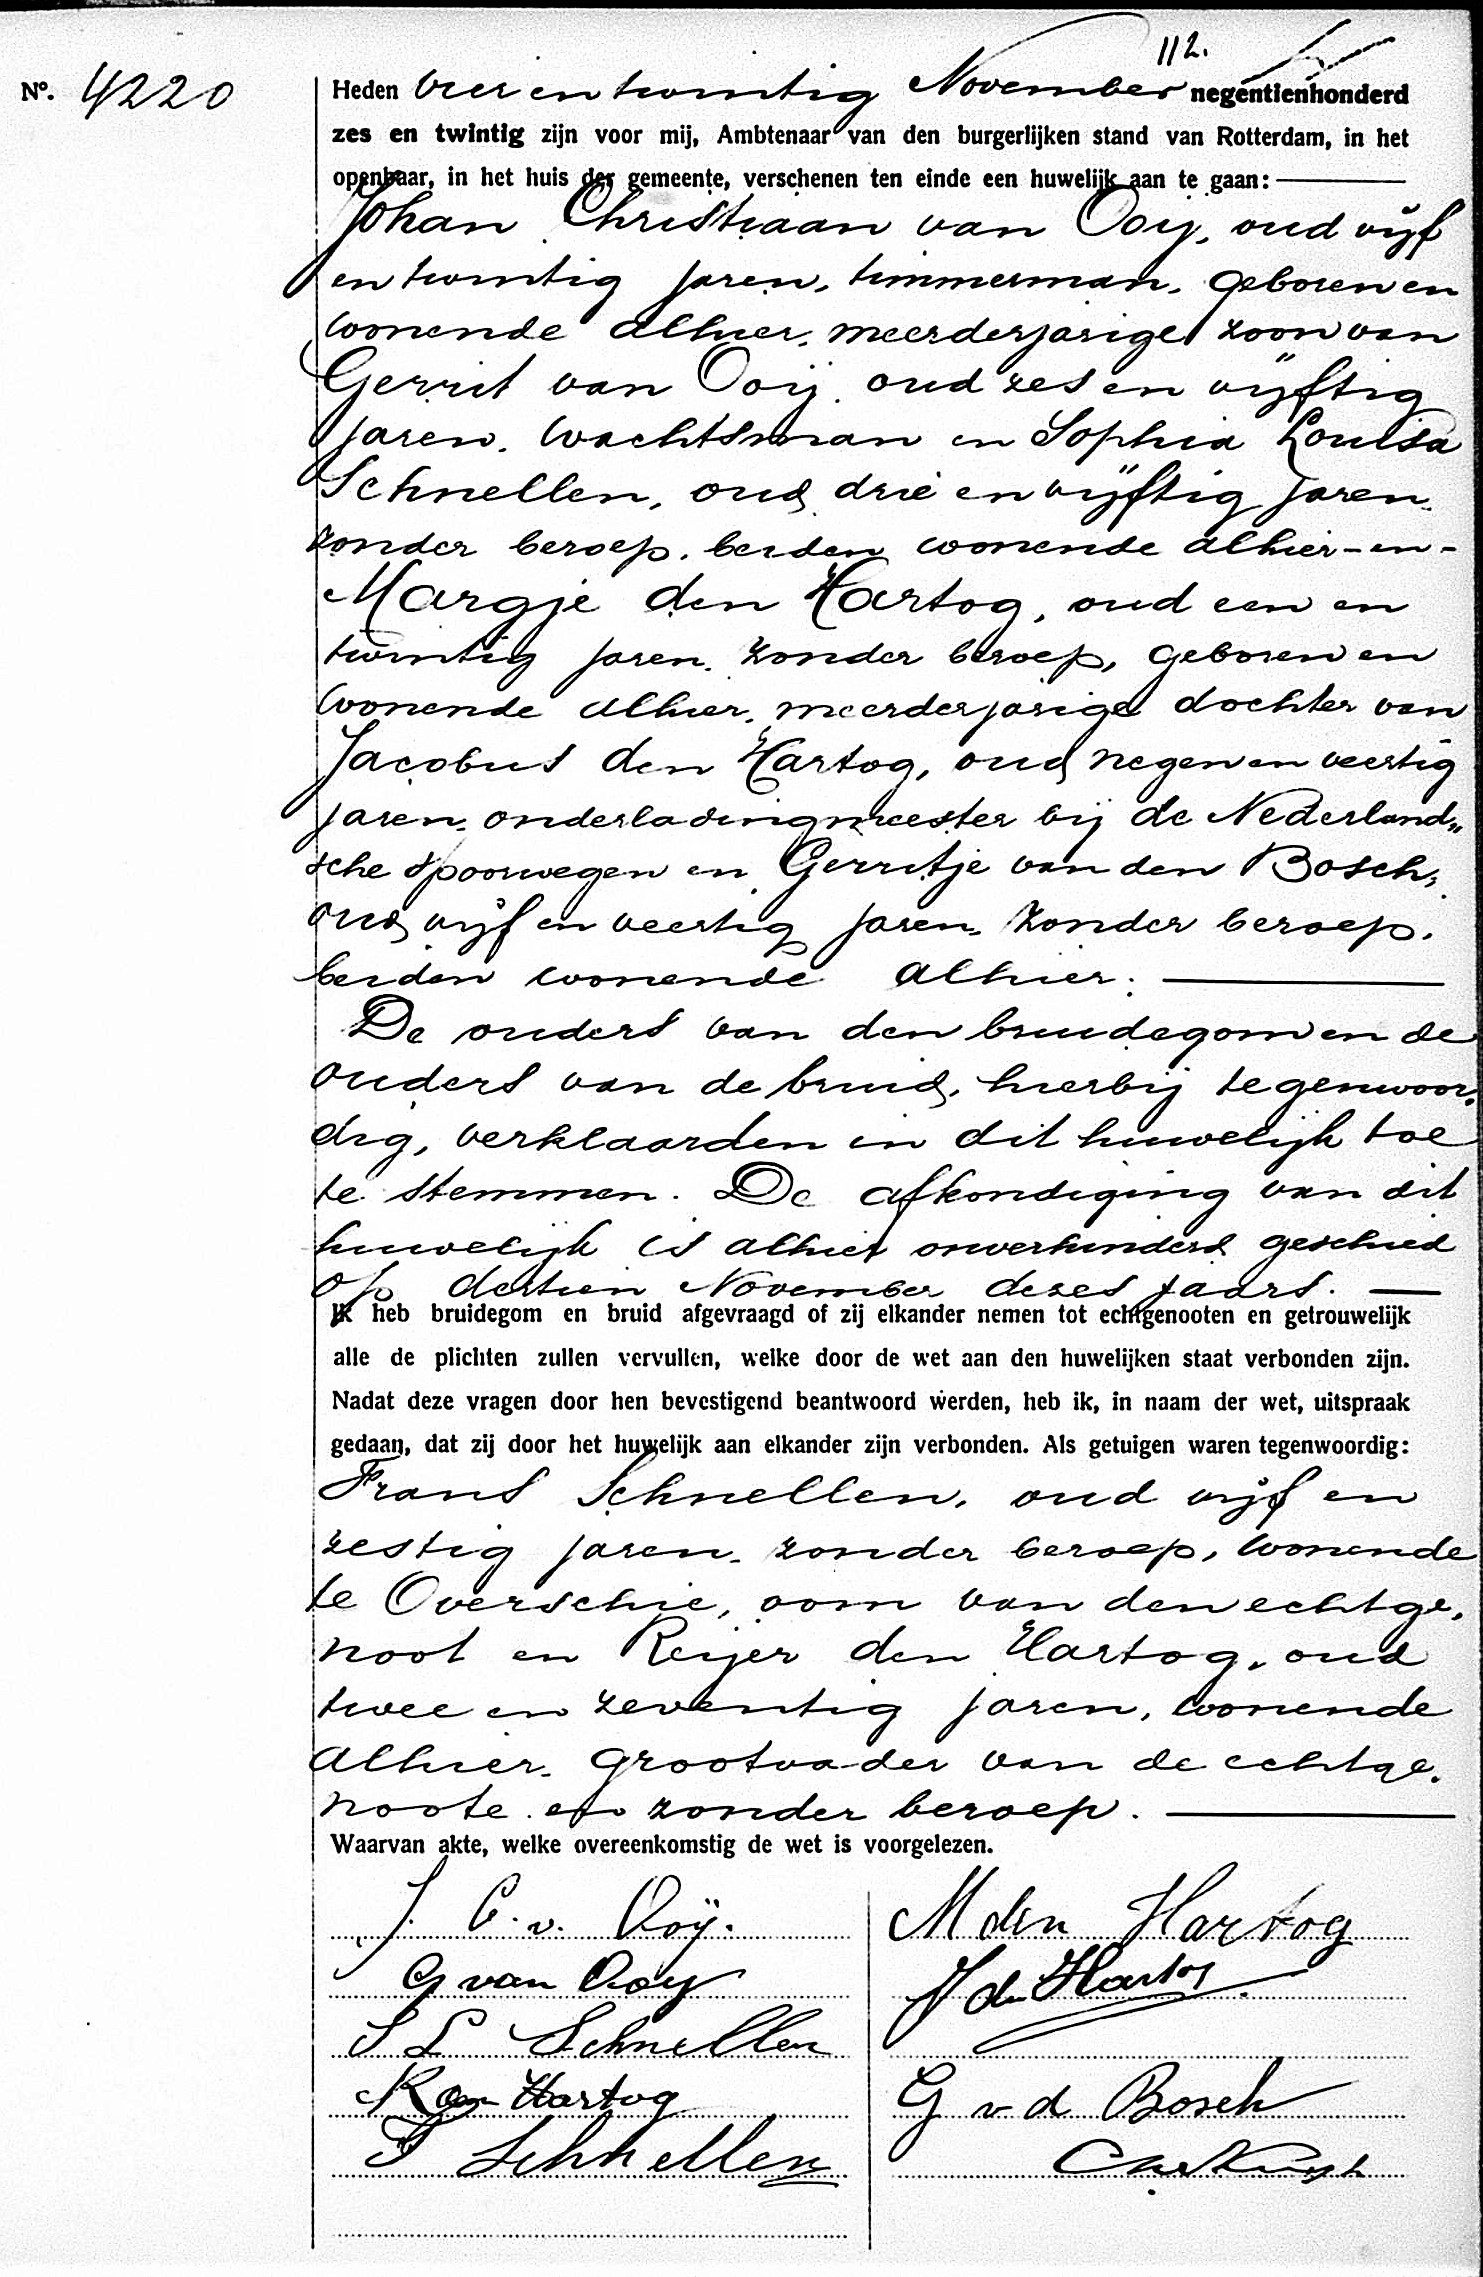 112.
Nº. 4220
Heden vier en twintig November negentienhonderd
zes en twintig zijn voor mij, Ambtenaar van den burgerlijken stand van Rotterdam, in het
openbaar, in het huis der gemeente, verschenen ten einde een huwelijk aan te gaan:
Johan Christiaan van Ooij, oud vijf
en twintig jaren, timmerman, geboren en
wonende alhier, meerderjarige zoon van
Gerrit van Ooij, oud zes en vijftig
jaren, wachtsman en Sophia Louisa
Schnellen, oud drie en vijftig jaren,
zonder beroep, beiden wonende alhier - en -
Margje den Hartog, oud een en
twintig jaren, zonder beroep, geboren en
wonende alhier, meerderjarige dochter van
Jacobus den Hartog, oud negen en veertig
jaren, onderladingmeester bij de Nederland„
sche Spoorwegen en Gerritje van den Bosch,
oud vijf en veertig jaren, zonder beroep,
beiden wonende alhier.
De ouders van den bruidegom en de
ouders van de bruid, hierbij tegenwoor„
dig, verklaarden in dit huwelijk toe
te stemmen. De afkondiging van dit
huwelijk is alhier onverhinderd geschied
op dertien November dezes jaars.
Ik heb bruidegom en bruid afgevraagd of zij elkander nemen tot echtgenooten en getrouwelijk
alle de plichten zullen vervullen, welke door de wet aan den huwelijken staat verbonden zijn.
Nadat deze vragen door hen bevestigend beantwoord werden, heb ik, in naam der wet, uitspraak
gedaan, dat zij door het huwelijk aan elkander zijn verbonden. Als getuigen waren tegenwoordig:
Frans Schnellen, oud vijf en
zestig jaren, zonder beroep, wonende
te Overschie, oom van den echtge„
noot en Reijer den Hartog, oud
twee en zeventig jaren, wonende
alhier, grootvader van de echtge„
noote en zonder beroep.
Waarvan akte, welke overeenkomstig de wet is voorgelezen.
J. C. v. Ooÿ.
M den Hartog
G van Ooy
J den Hartog
S L Schnellen
R den Hartog
G v d Bosch
F Schnellen